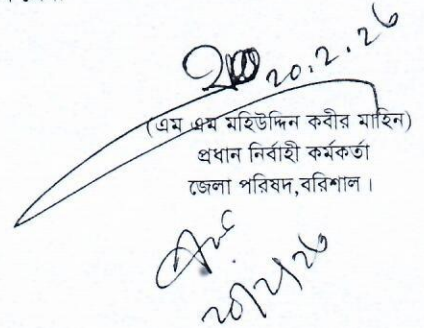 ২০.২.২৬
(এম এম মহিউদ্দিন কবীর মাহিন)
প্রধান নির্বাহী কর্মকর্তা
জেলা পরিষদ,বরিশাল।